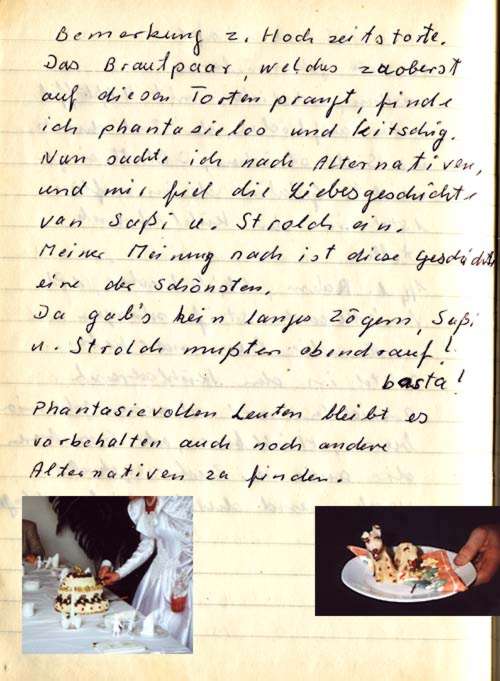 Bemerkung z. Hochzeitstorte.
Das Brautpaar, welches zuoberst
auf diesen Torten prangt, finde
ich phantasielos und kitschig.
Nun suchte ich nach Alternativen,
und mir fiel die Liebesgeschichte
von Sußi u. Strolch ein.
Meiner Meinung nach ist diese Geschichte
eine der Schönsten.
Da gab's kein langes Zögern, Sußi
u. Strolch mußten obendrauf!
basta!
Phantasievollen Leuten bleibt es
vorbehalten auch noch andere
Alternativen zu finden.